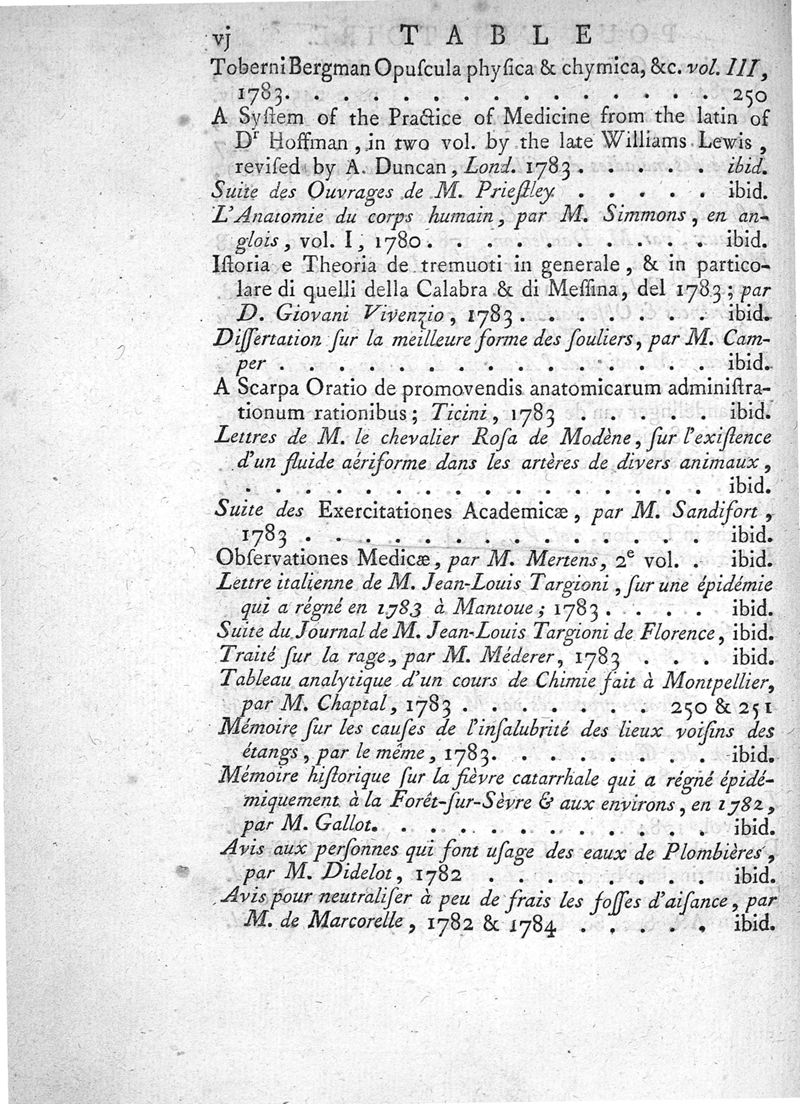 vj TABLE
Toberni Bergman Opuſcula phyſica & chymica, &c. vol. III,
1783. . . . . . . . . . . . . . . 250
A Syſtem of the Practice of Medicine from the latin of
Dr Hoffman, in two vol. by the late Williams Lewis,
reviſed by A. Duncan, Lond. 1783 . . . . . . ibid.
Suite des Ouvrages de M. Prieſtley . . . . . . ibid.
L'Anatomie du corps humain, par M. Simmons, en an-
glois, vol. I, 1780. . . . . . . . . . . ibid.
Iſtoria e Theoria de tremuoti in generale, & in partico-
lare di quelli della Calabra & di Meſſina, del 1783; par
D. Giovani Vivenzio, 1783 . . . . . . . . ibid.
Diſſertation ſur la meilleure forme des ſouliers, par M. Cam-
per . . . . . . . . . . . . . . . . ibid.
A Scarpa Oratio de promovendis anatomicarum adminiſtra-
tionum rationibus; Ticini, 1783 . . . . . . ibid.
Lettres de M. le chevalier Roſa de Modène, ſur l'exiſtence
d'un fluide aériforme dans les artères de divers animaux,
. . . . . . . . . . . . . . . . . ibid.
Suite des Exercitationes Academicæ, par M. Sandifort,
1783 . . . . . . . . . . . . . . . ibid.
Obſervationes Medicæ, par M. Mertens, 2e vol. . ibid.
Lettre italienne de M. Jean-Louis Targioni, ſur une épidémie
qui a régné en 1783 à Mantoue; 1783 . . . . . ibid.
Suite du Journal de M. Jean-Louis Targioni de Florence, ibid.
Traité ſur la rage, par M. Méderer, 1783 . . . ibid.
Tableau analytique d'un cours de Chimie fait à Montpellier,
par M. Chaptal, 1783 . . . . . . . . 250 & 251
Mémoire ſur les cauſes de l'inſalubrité des lieux voiſins des
étangs, par le même, 1783. . . . . . . . . ibid.
Mémoire hiſtorique ſur la fièvre catarrhale qui a régné épidé-
miquement à la Forêt-ſur-Sèvre & aux environs, en 1782,
par M. Gallot. . . . . . . . . . . . . ibid.
Avis aux perſonnes qui font uſage des eaux de Plombières,
par M. Didelot, 1782 . . . . . . . . . ibid.
Avis pour neutraliſer à peu de frais les foſſes d'aiſance, par
M. de Marcorelle, 1782 & 1784 . . . . . . ibid.